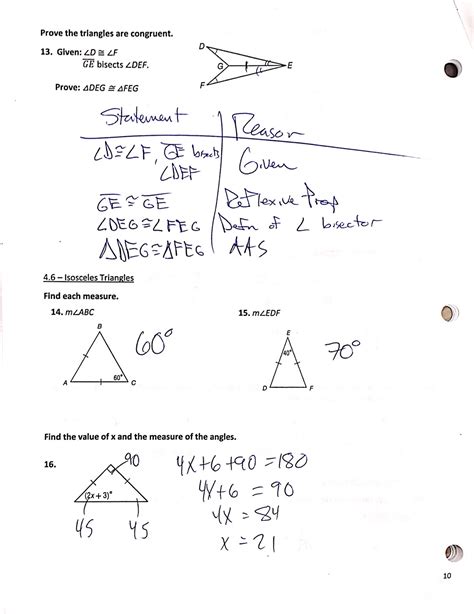 Prove the triangles are congruent.
13. Given: ∠D ≅ ∠F
GE bisects ∠DEF.
Prove: △DEG ≅ △FEG
D
G
E
F
Statement Reason
∠D≅∠F, GE bisects ∠DEF Given
GE ≅ GE Reflexive Prop
∠DEG≅∠FEG Defn of ∠ bisector
△DEG≅△FEG AAS
4.6 – Isosceles Triangles
Find each measure.
14. m∠ABC
B
A
C
60°
60°
15. m∠EDF
E
40°
D
F
70°
Find the value of x and the measure of the angles.
16.
90
(2x + 3)°
45 45
4x+6+90=180
4x+6 = 90
4x = 84
x = 21
10